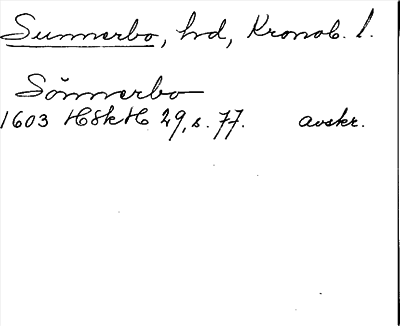 Sunnerbo, hd, Kronob. l.
Sönnerbo
1603 HSkH 29, s. 77. avskr.